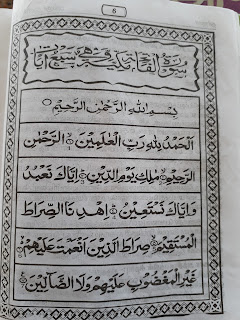 5
سورة الفاتحة مكية وهي سبع آيات
بِسْمِ اللهِ الرَّحْمٰنِ الرَّحِيْمِ
اَلْحَمْدُ لِلّٰهِ رَبِّ الْعٰلَمِيْنَ ۝ الرَّحْمٰنِ
الرَّحِيْمِ ۝ مٰلِكِ يَوْمِ الدِّيْنِ ۝ اِيَّاكَ نَعْبُدُ
وَاِيَّاكَ نَسْتَعِيْنُ ۝ اِهْدِنَا الصِّرَاطَ
الْمُسْتَقِيْمَ ۝ صِرَاطَ الَّذِيْنَ اَنْعَمْتَ عَلَيْهِمْ
غَيْرِ الْمَغْضُوْبِ عَلَيْهِمْ وَلَا الضَّآلِّيْنَ ۝